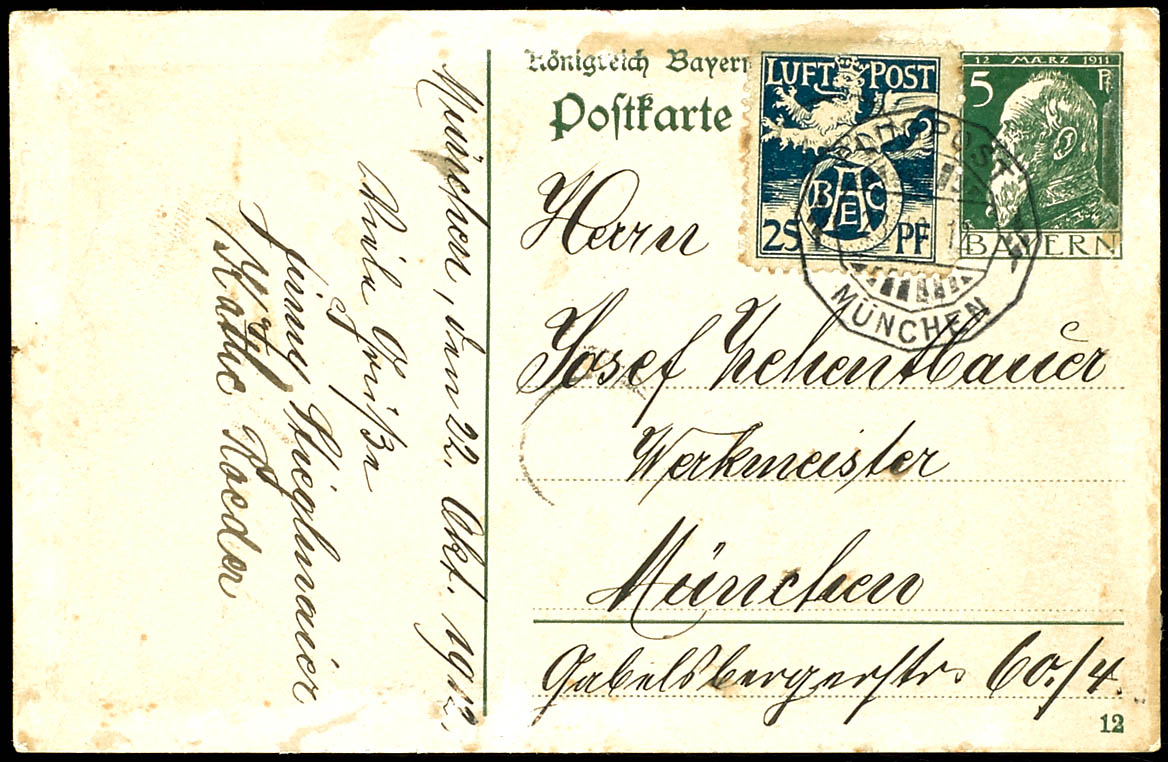 Königreich Bayern
Postkarte
LUFT POST
BAEC
25 PF
12 MÆRZ 1911
5 Pf
BAYERN
MÜNCHEN
Herrn
Josef Zehentbauer
Werkmeister
München
Gabelsbergerstr. 60./4.
12
München, den 22. Okt. 1912.
Viele Grüße
Käthe Roeder